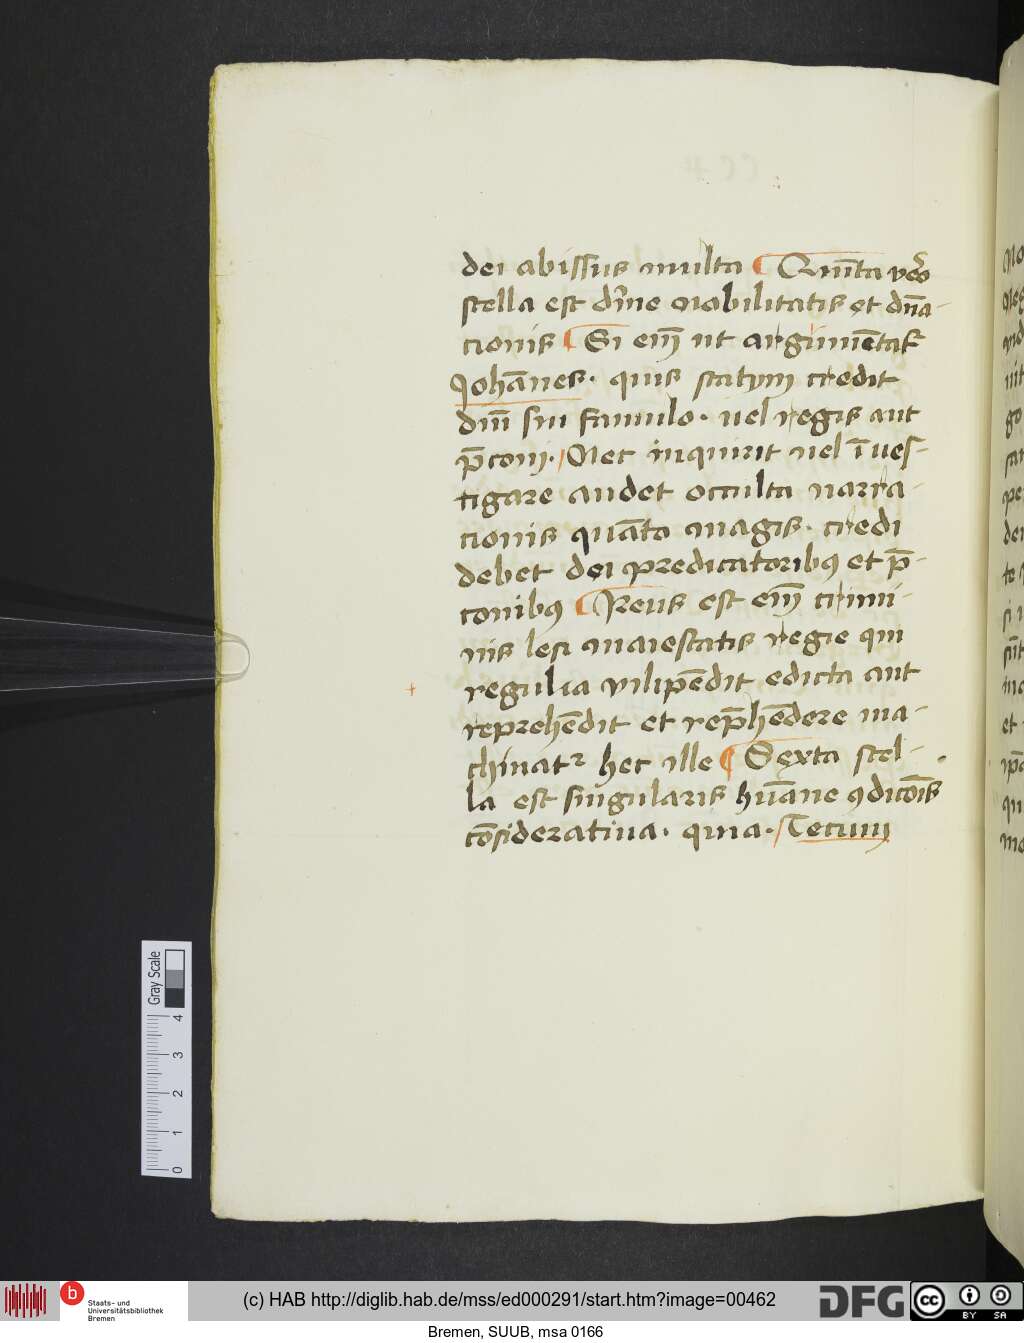 dei abissus multa ¶ Qui̅ta ve͛o
stella est di̅ne nobilitatis et dn̅a-
cionis ¶ Si eni̅ ut argume̅tat᷑
Joha̅nes · quis statym credit
dm̅ sui famulo · uel regis aut
p̅coni · Nec inquirit uel i̅ues-
tigare audet occulta narra-
cionis qua̅to magis · credi
debet dei predicatoribꝰ et p̅-
conibꝰ ¶ Reus est eni̅ crimi-
nis lesi maiestatis regie qui
regulia vilipe̅dit edicta aut
reprehe̅dit et rep̅he̅dere ma-
chinatᷣ hec ille ¶ Sexta stel-
la est singularis hu̅ane ꝯdico̅is
co̅sideratiua · quia · Tecum
Gray Scale
0 1 2 3 4
Staats- und
Universitätsbibliothek
Bremen
(c) HAB http://diglib.hab.de/mss/ed000291/start.htm?image=00462
DFG
cc BY SA
Bremen, SUUB, msa 0166